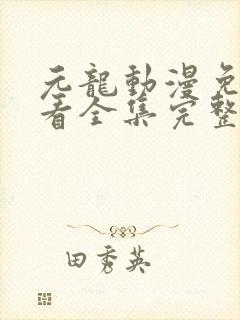 元龍動漫免
看全集完整
田秀英